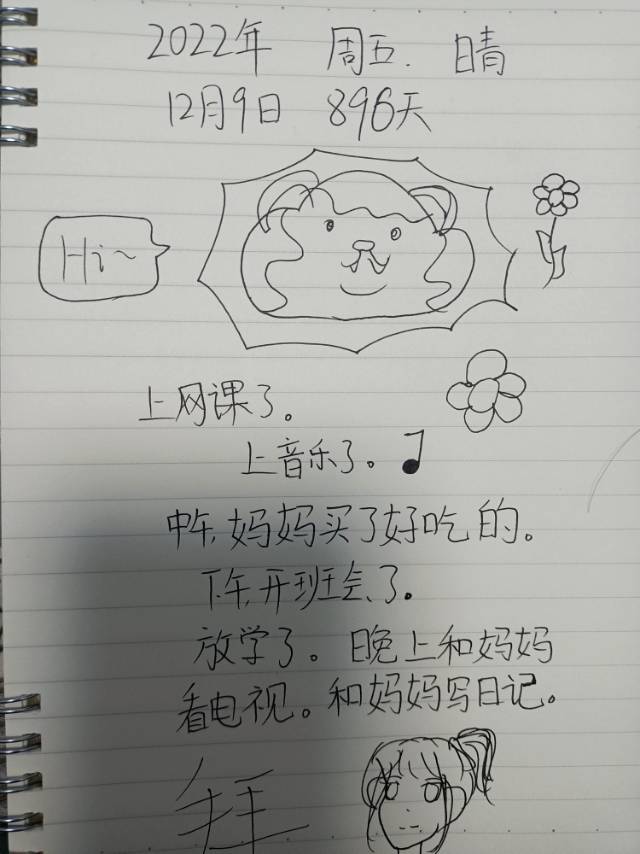 2022年 周五. 日青
12月9日 896天
Hi~
上网课了。
上音乐了。
中午,妈妈买了好吃的。
下午,开班会了。
放学了。晚上和妈妈
看电视。和妈妈写日记。